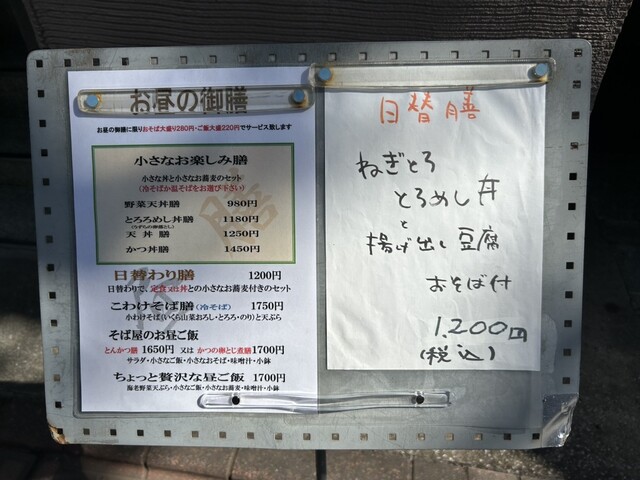 お昼の御膳
お昼の御膳に限りおそば大盛り280円・ご飯大盛220円でサービス致します
小さなお楽しみ膳
小さな丼と小さなお蕎麦のセット
(冷そばか温そばをお選び下さい)
野菜天丼膳 980円
とろろめし丼膳 1180円
(うずらの卵落とし)
天丼膳 1250円
かつ丼膳 1450円
日替わり膳 1200円
日替わりで、定食又は丼との小さなお蕎麦付きのセット
こわけそば膳(冷そば) 1750円
小わけそば(いくら山菜おろし・とろろ・のり)と天ぷら
そば屋のお昼ご飯
とんかつ膳 1650円 又は かつの卵とじ煮膳1700円
サラダ・小さなご飯・小さなおそば・味噌汁・小鉢
ちょっと贅沢な昼ご飯 1700円
海老野菜天ぷら・小さなご飯・小さなお蕎麦・味噌汁・小鉢
日替膳
ねぎとろ
とろめし丼
と
揚げ出し豆腐
おそば付
1.200円
(税込)